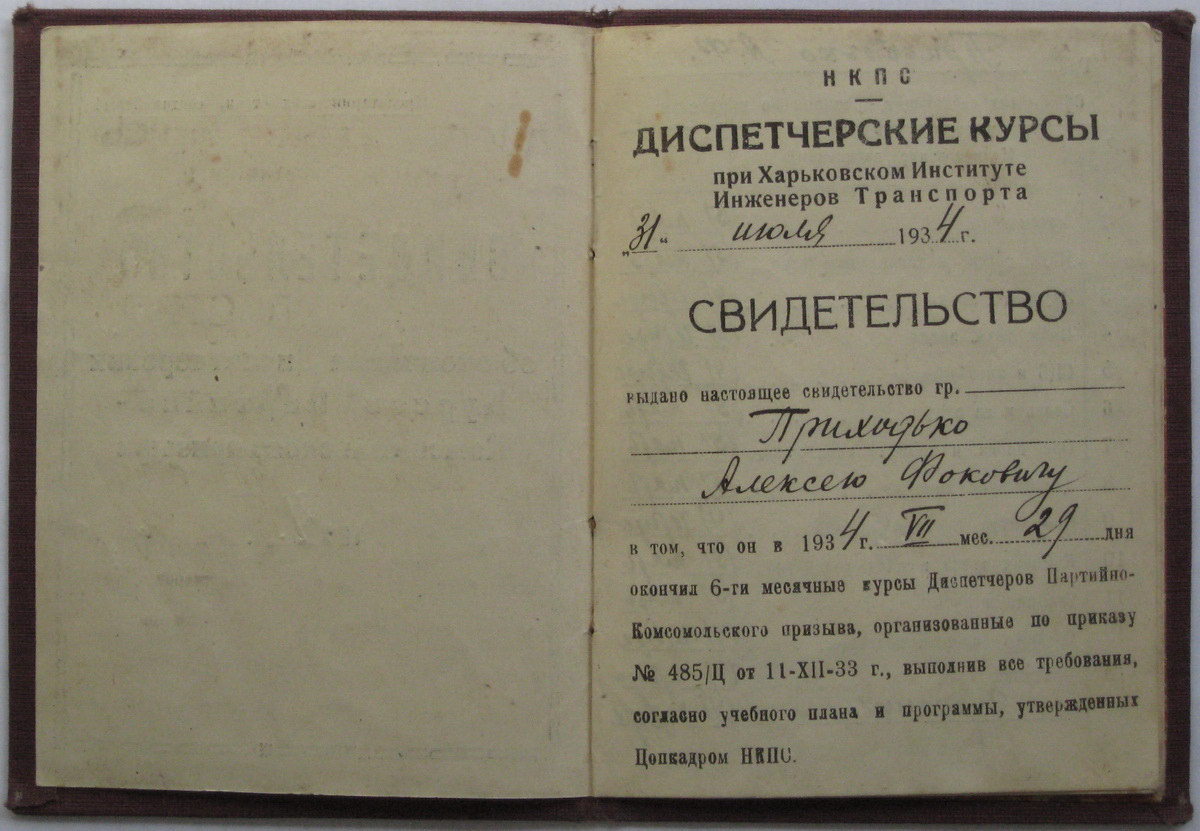 НКПС
ДИСПЕТЧЕРСКИЕ КУРСЫ
при Харьковском Институте
Инженеров Транспорта
„31" июля 1934 г.
СВИДЕТЕЛЬСТВО
выдано настоящее свидетельство гр.
Приходько
Алексею Фоковичу
в том, что он в 1934 г. VII мес. 29 дня
окончил 6-ти месячные курсы Диспетчеров Партийно-
Комсомольского призыва, организованные по приказу
№ 485/Ц от 11-XII-33 г., выполнив все требования,
согласно учебного плана и программы, утвержденных
Цопкадром НКПС.